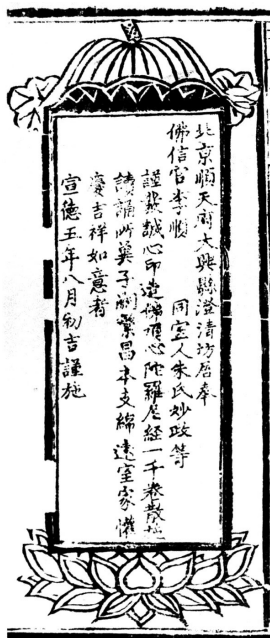 北京順天府大興縣澄清坊居奉
佛信官李順　同室人朱氏妙政等
謹發誠心印造佛頂心陀羅尼経一千卷散施
讀誦所兾子嗣繁昌本支綿遠室家懽
慶吉祥如意者
宣德五年八月初吉謹施